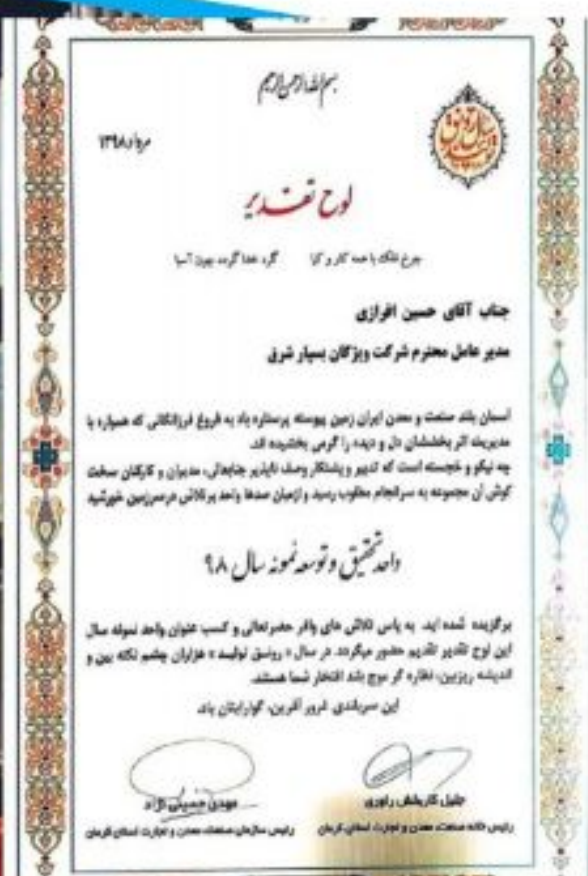 بسم الله الرحمن الرحیم
سال رونق تولید
مرداد ۱۳۹۸
لوح تقدیر
چرخ فلک با همه کار و کیا گرد خدا گردد چون آسیا
جناب آقای حسین افرازی
مدیر عامل محترم شرکت ویژگان بسپار شرق
آسمان بلند صنعت و معدن ایران زمین پیوسته پرستاره باد به فروغ فرزانگانی که همواره با
مدیریت اثر بخششان دل و دیده را گرمی بخشیده اند.
چه نیکو و خجسته است که تدبیر و پشتکار وصف ناپذیر جنابعالی، مدیران و کارکنان سخت
کوش آن مجموعه به سرانجام مطلوب رسید و ازمیان صدها واحد پرتلاش درسرزمین خورشید
واحد تحقیق و توسعه نمونه سال ۹۸
برگزیده شده اید. به پاس تلاش های وافر حضرتعالی و کسب عنوان واحد نمونه سال
این لوح تقدیر تقدیم حضور میگردد. در سال « رونق تولید » هزاران چشم نکته بین و
اندیشه ریزبین، نظاره گر موج بلند افتخار شما هستند.
این سربلندی غرور آفرین، گوارایتان باد.
جلیل کاربخش راوری
مهدی حسینی نژاد
رئیس خانه صنعت، معدن و تجارت استان کرمان
رئیس سازمان صنعت، معدن و تجارت استان کرمان